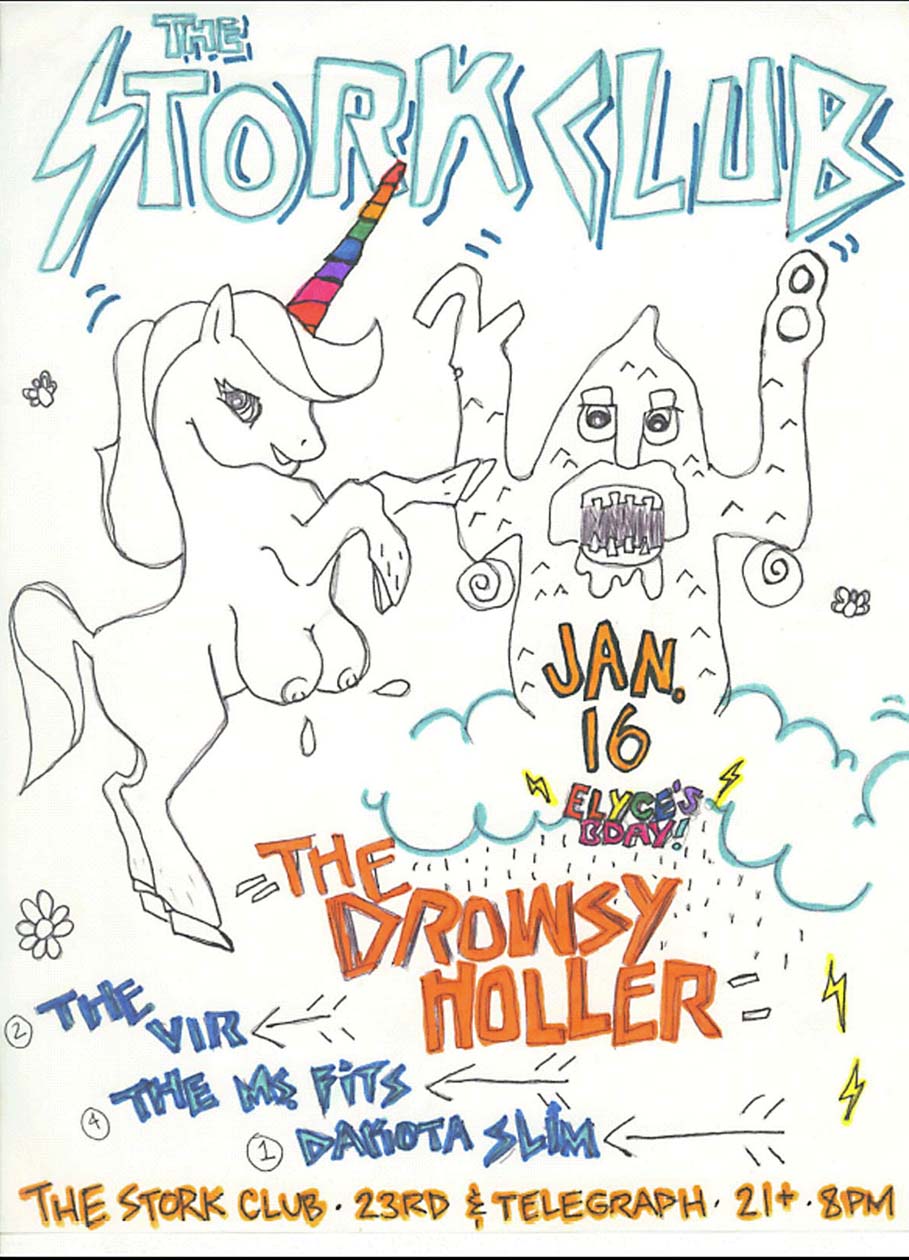 THE
STORK CLUB
JAN.
16
ELYCE'S
BDAY!
THE
DROWSY
HOLLER
② THE VIR
④ THE MS. FiTS
① DAKOTA SLiM
THE STORK CLUB · 23RD & TELEGRAPH · 21+ · 8PM